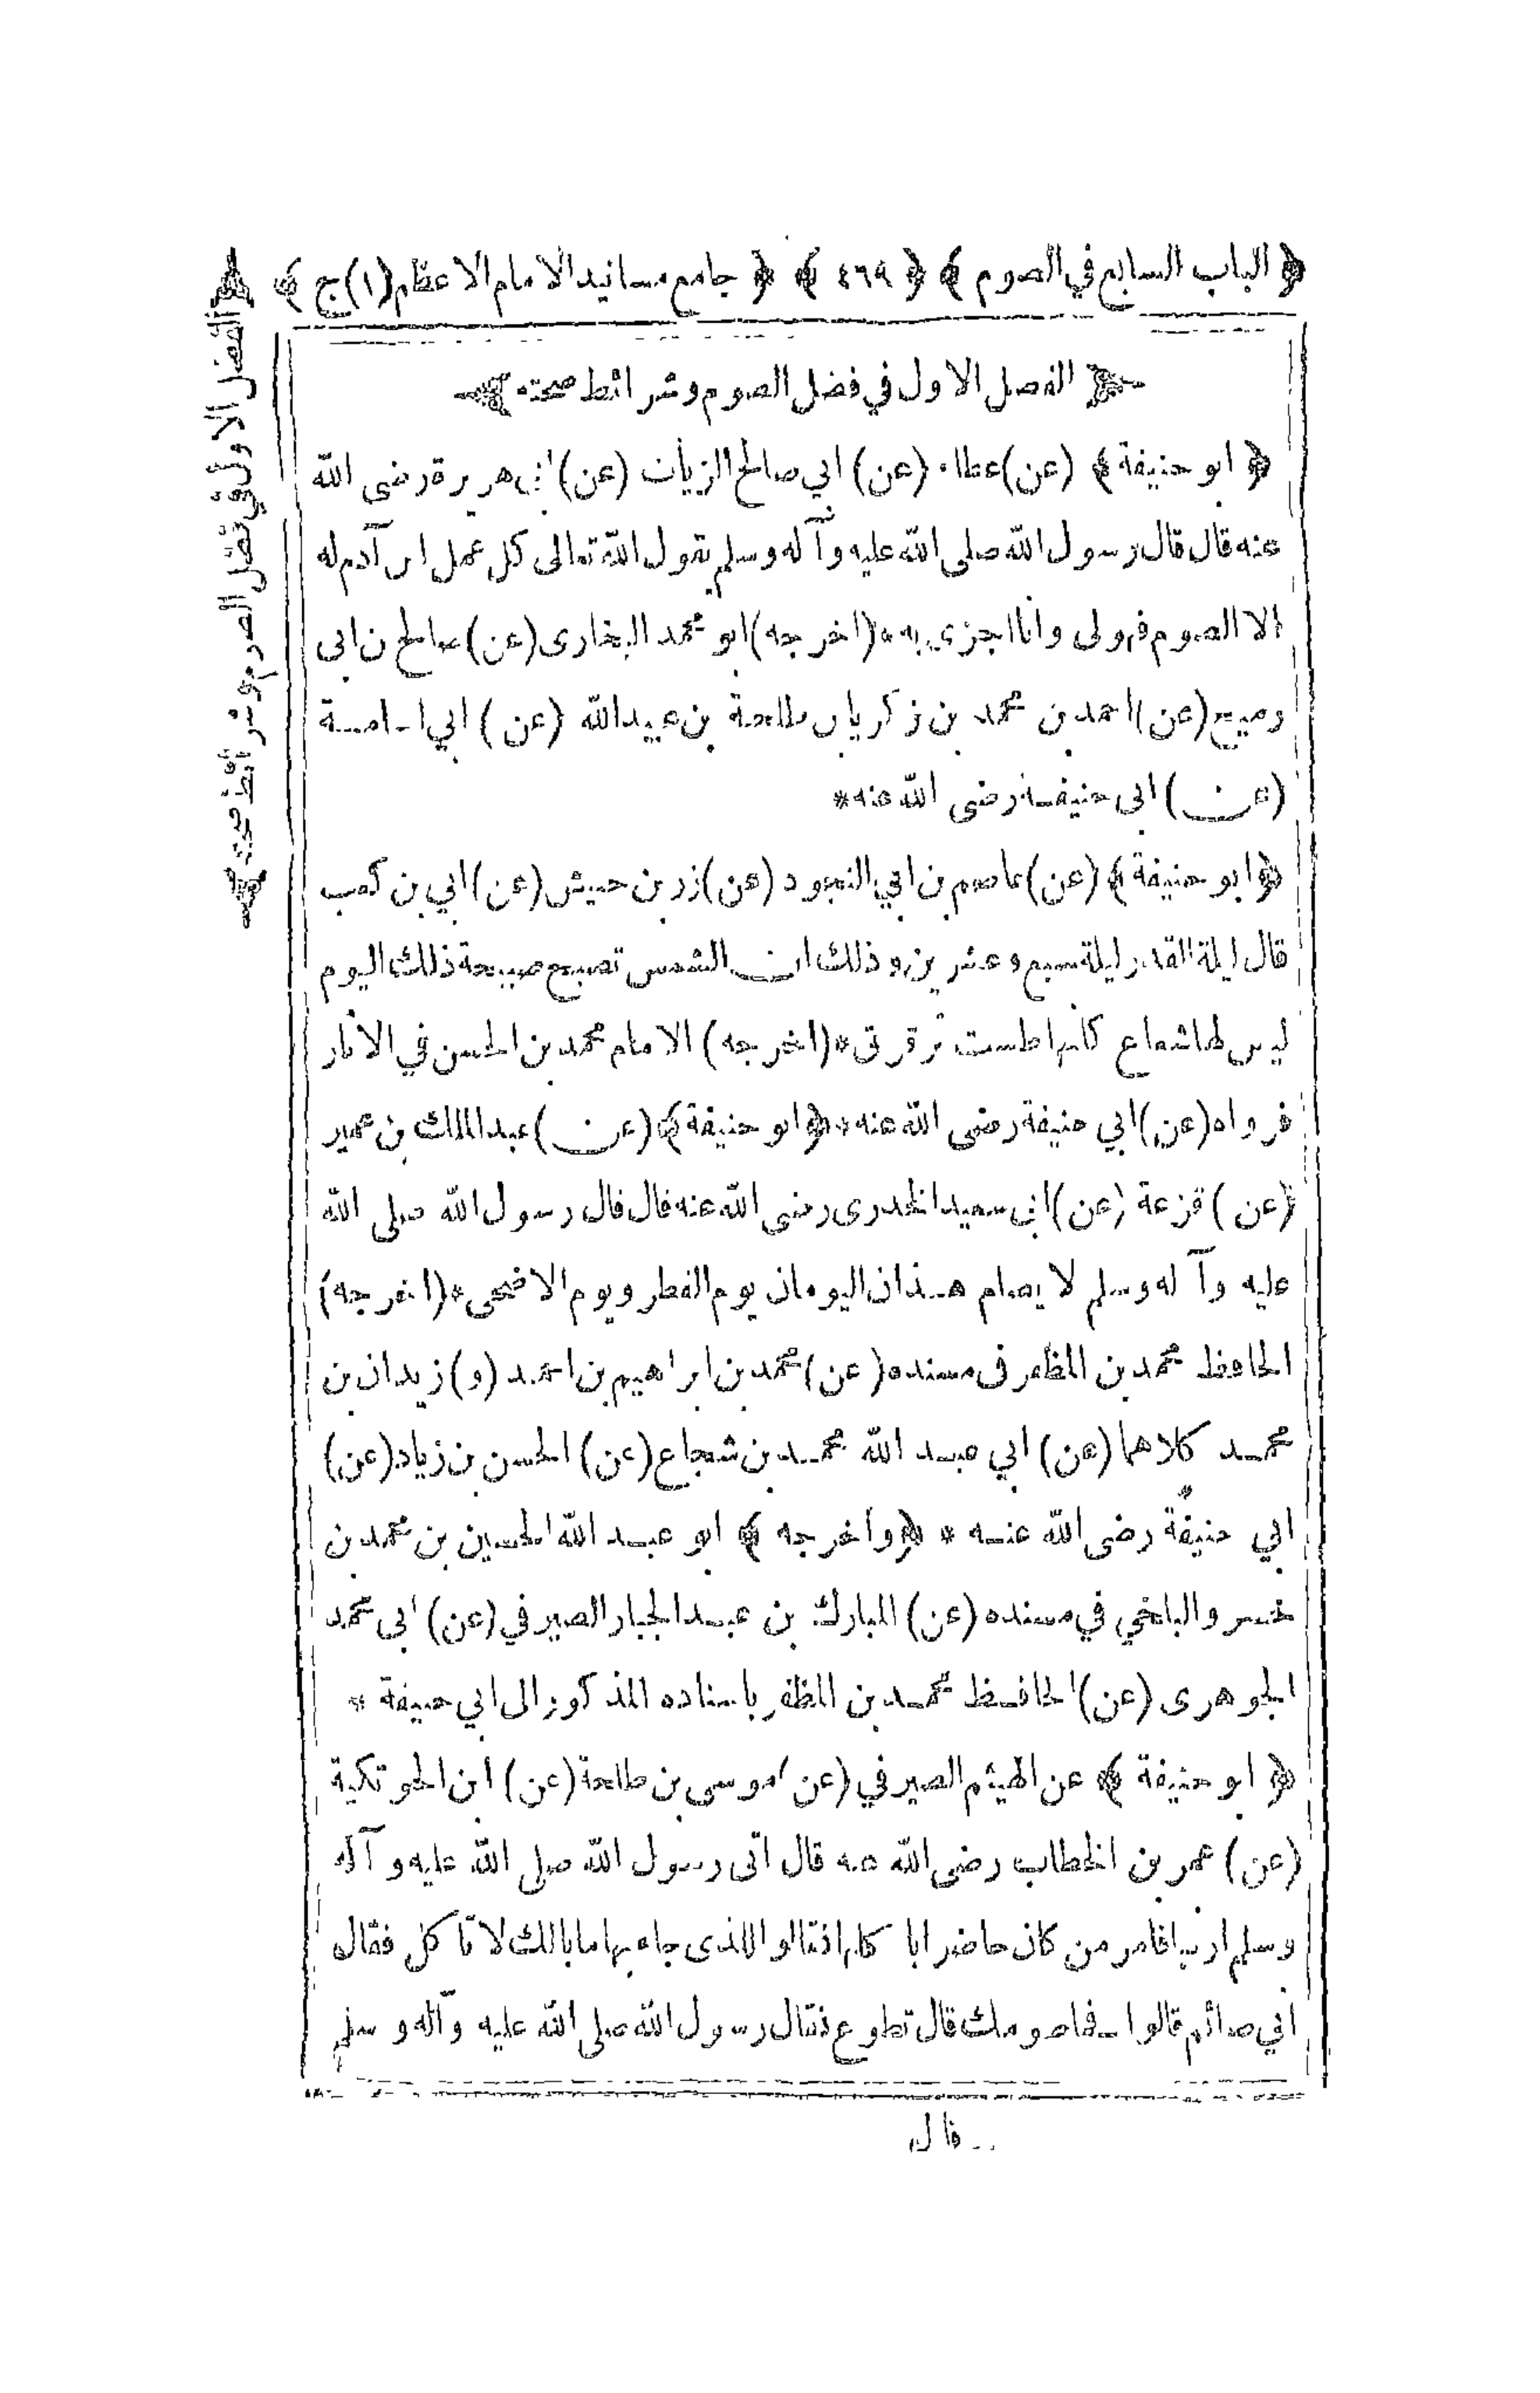 ﴿ الباب السابع في الصوم ﴾ ﴿ ٤٦٩ ﴾ ﴿ جامع مسانيد الامام الاعظم (١) ج ﴾
الفصل الاول في فضل الصوم وشرائط صحته
﴿ ابو حنيفة ﴾ (عن) عطاء (عن) ابي صالح الزيات (عن) ابي هريرة رضى الله
عنه قال قال رسول الله صلى الله عليه وآله وسلم يقول الله تعالى كل عمل ابن آدم له
الا الصوم فهو لى وانا اجزى به * (اخرجه) ابو محمد البخارى (عن) صالح بن ابى
رميح (عن) احمد بن محمد بن زكريا بن طلحة بن عبيد الله (عن) ابي اسامة
(عن) ابى حنيفة رضى الله عنه *
﴿ ابو حنيفة ﴾ (عن) عاصم بن ابي النجود (عن) زر بن حبيش (عن) ابي بن كعب
قال ليلة القدر ليلة سبع وعشرين وذلك ان الشمس تصبح صبيحة ذلك اليوم
ليس لها شعاع كانها طست ترقرق * (اخرجه) الامام محمد بن الحسن في الآثار
فرواه (عن) ابي حنيفة رضى الله عنه * ﴿ ابو حنيفة ﴾ (عن) عبد الملك بن عمير
(عن) قزعة (عن) ابى سعيد الخدرى رضى الله عنه قال قال رسول الله صلى الله
عليه وآله وسلم لا يصام هذان اليومان يوم الفطر ويوم الاضحى * (اخرجه)
الحافظ محمد بن المظفر فى مسنده (عن) محمد بن ابراهيم بن احمد (و) زيدان بن
محمد كلاهما (عن) ابي عبد الله محمد بن شجاع (عن) الحسن بن زياد (عن)
ابي حنيفة رضى الله عنه * ﴿ واخرجه ﴾ ابو عبد الله الحسين بن محمد بن
خسرو البلخي في مسنده (عن) المبارك بن عبد الجبار الصيرفي (عن) ابى محمد
الجوهرى (عن) الحافظ محمد بن المظفر باسناده المذكور الى ابي حنيفة *
﴿ ابو حنيفة ﴾ عن الهيثم الصيرفي (عن) موسى بن طلحة (عن) ابن الحوتكية
(عن) عمر بن الخطاب رضى الله عنه قال اتى رسول الله صلى الله عليه وآله
وسلم ارنبا فامر من كان حاضرا باكلها فقالوا للذى جاء بها ما بالك لا تأكل فقال
اني صائم قالوا فما صومك قال تطوع فقال رسول الله صلى الله عليه وآله وسلم
قال
الفصل الاول في فضل الصوم وشرائط صحته